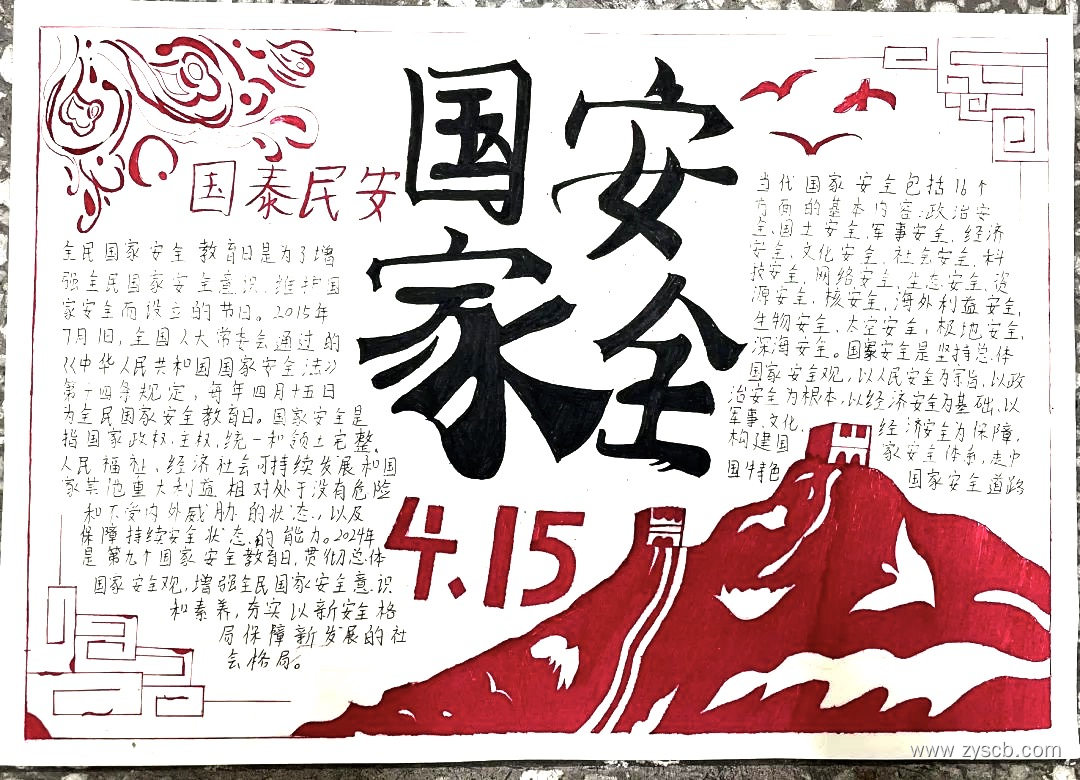 国家安全
4.15
国泰民安
全民国家安全教育日是为了增
强全民国家安全意识,维护国
家安全而设立的节日。2015年
7月1日,全国人大常委会通过的
《中华人民共和国国家安全法》
第十四条规定,每年四月十五日
为全民国家安全教育日。国家安全是
指国家政权,主权,统一和领土完整、
人民福祉、经济社会可持续发展和国
家其他重大利益相对处于没有危险
和不受内外威胁的状态,以及
保障持续安全状态的能力。2024年
是第九个国家安全教育日,贯彻总体
国家安全观,增强全民国家安全意识
和素养,夯实以新安全格
局保障新发展的社
会格局。
当代国家安全包括16个
方面的基本内容:政治安
全、国土安全、军事安全、经济
安全、文化安全、社会安全、科
技安全、网络安全、生态安全、资
源安全、核安全、海外利益安全,
生物安全、太空安全、极地安全、
深海安全。国家安全是坚持总体
国家安全观,以人民安全为宗旨,以政
治安全为根本,以经济安全为基础,以
军事、文化、经济安全为保障,
构建国家安全体系,走中
国特色国家安全道路
www.zyscb.com